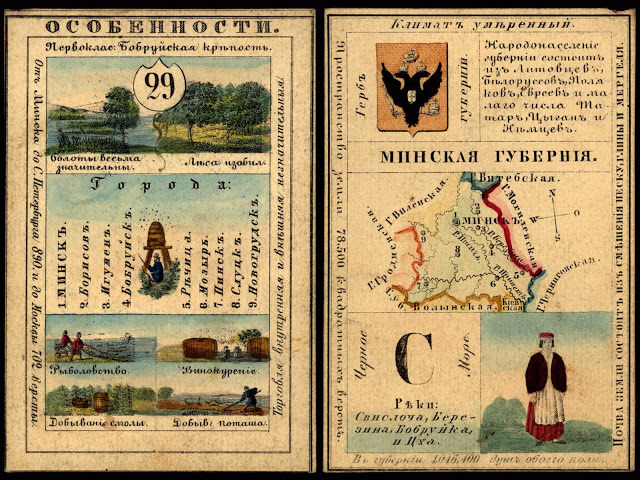 ОСОБЕННОСТИ.
Первоклас: Бобруйская крѣпость.
29
болоты весьма значительны.
Лѣса изобил.
Города:
1. МИНСКЪ.
2. Борисовъ.
3. Игуменъ.
4. Бобруйскъ.
5. Рѣчица.
6. Мозырь.
7. Пинскъ.
8. Слуцкъ.
9. Новогрудскъ.
Рыболовство.
Винокуреніе.
Добываніе смолы.
Добыв: поташа.
Отъ Минска до С. Петербурга 890, и до Москвы 702 версты.
Торговля, внутренняя и внѣшняя, незначительныя.
Климатъ умѣренный.
Гербъ
губерніи.
Народонаселеніе
губерніи состоитъ
изъ Литовцевъ,
Бѣлоруссовъ, Поля
ковъ, Евреевъ и ма
лаго числа Та
таръ, Цыганъ и
Нѣмцевъ.
МИНСКАЯ ГУБЕРНІЯ.
Г. Витебская.
Г. Виленская.
Г. Могилевская
Г. Гродненская
МИНСКЪ
Г. Черниговская.
Губ. Волынская.
Кіевская
N
W
O
S
Черное
Море.
С
Рѣки:
Свислочь, Бере-
зина, Бобруйка,
и Цха.
Въ губерніи 1,046,400 душъ обоего пола.
Пространство земли 78,500 квадратныхъ верстъ.
Почва земли состоитъ изъ смѣшенія песку, глины и мергели.